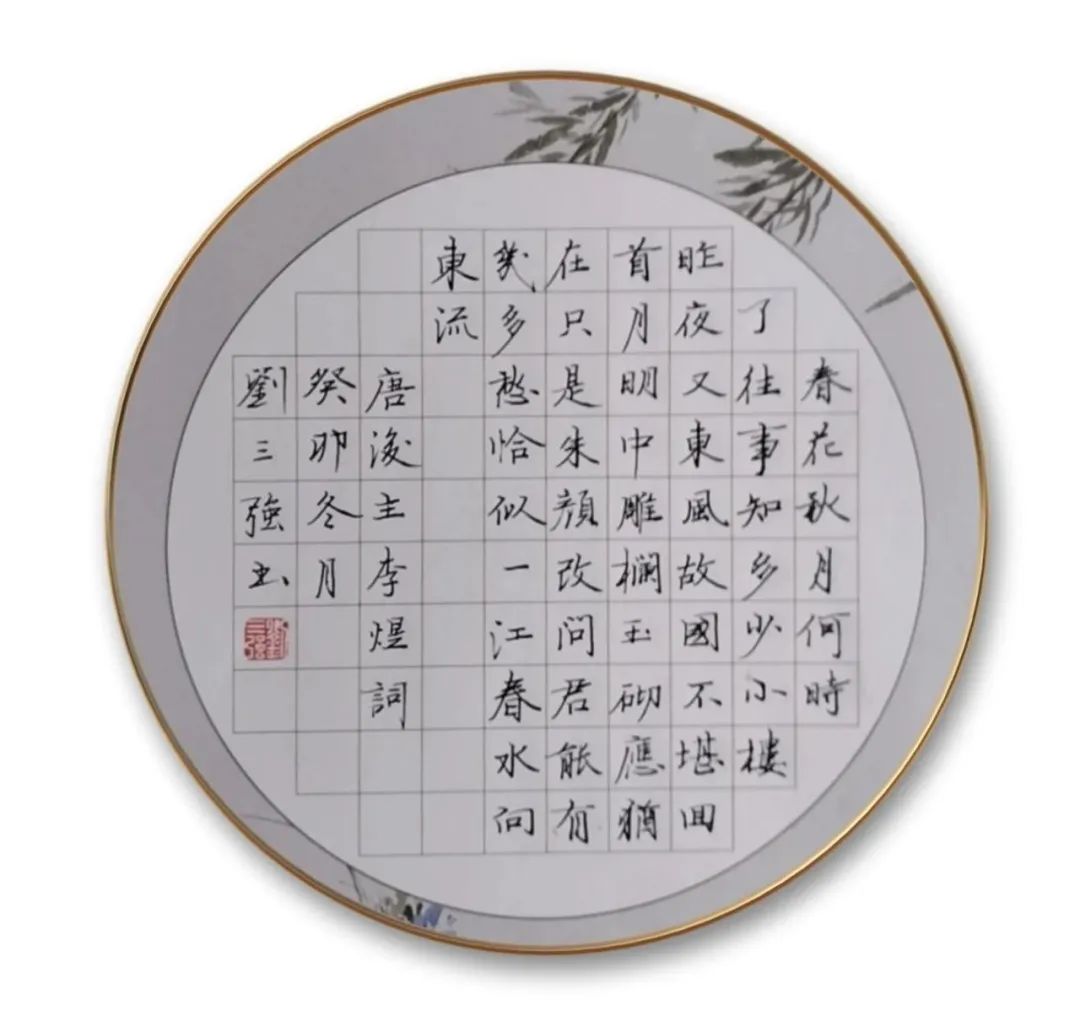 春花秋月何時
了往事知多少小楼
昨夜又東風故國不堪回
首月明中雕欄玉砌應猶
在只是朱顔改問君能有
幾多愁恰似一江春水向
東流
唐後主李煜詞
癸卯冬月
劉三強书